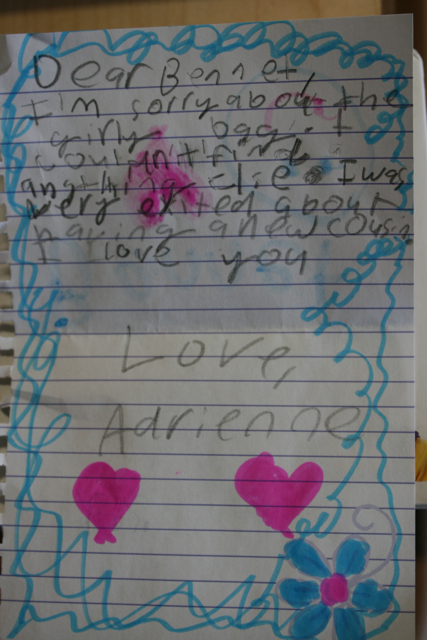 Dear Bennet,
I'm sorry about the
girly bag. I
couldn't find
anything else I was
very exited about
having a new cousin
I love you
Love,
Adrienne